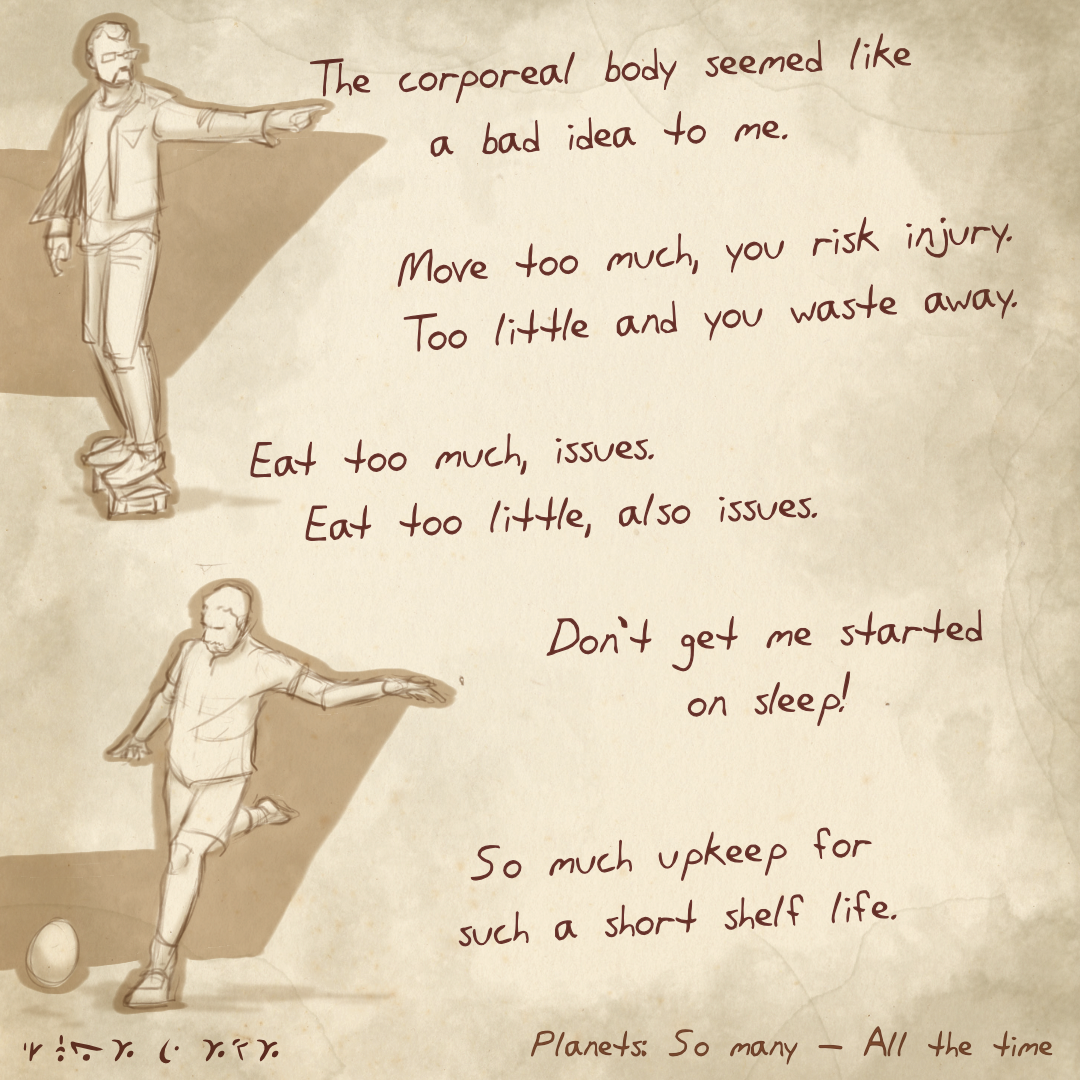 The corporeal body seemed like
a bad idea to me.
Move too much, you risk injury.
Too little and you waste away.
Eat too much, issues.
Eat too little, also issues.
Don't get me started
on sleep!
So much upkeep for
such a short shelf life.
Planets: So many — All the time